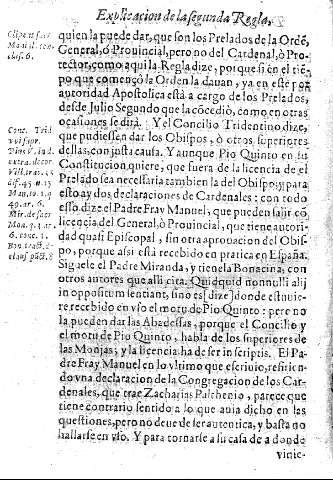 Explicacion de la segunda Regla,
quien la puede dar, que son los Prelados de la Ordē,
General, ò Prouincial, pero no del Cardenal, ò Pro-
tector, como aqui la Regla dize, porque si en el tiē-
po que començò la Orden la dauan, ya en este por
autoridad Apostolica està a cargo de los Prelados,
desde Julio Segundo que la cōcediò, como en otras
ocasiones se dirà. Y el Concilio Tridentino dize,
que pudiessen dar los Obispos, ò otros superiores
dellas, con justa causa. Y aunque Pio Quinto en su
Constitucion quiere, que fuera de la licencia de el
Prelado sea necessaria tambien la del Obispo; y para
esto ay dos declaraciones de Cardenales: con todo
esso dize el Padre Fray Manuel, que pueden salir cō
licencia del General, ò Prouincial, que tienen autori-
dad quasi Episcopal, sin otra aprouacion del Obis-
po, porque assi està recebido en pratica en España.
Siguele el Padre Miranda, y tienela Bonacina, con
otros autores que alli cita. Quidquid nonnulli alij
in oppositum sentiant, sino es [dize] donde estuuie-
re recebido en vso el motu de Pio Quinto: pero no
la pueden dar las Abadessas, porque el Concilio y
el motu de Pio Quinto, habla de los superiores de
las Monjas; y la licencia ha de ser in scriptis. El Pa-
dre Fray Manuel en lo vltimo que escriuio, resistiē-
do vna declaracion de la Congregacion de los Car-
denales, que trae Zacharias parece que
tiene contrario sentido a lo que auia dicho en las
questiones, pero no deue de ser autentica, y basta no
hallarse en vso. Y para tornarse a su casa de a donde
vinie-
Conc. Trid
vbi supr.
Pius V. in d.
Mir. de sacr
Mon. q. 1. ar.
6. conc. 1.